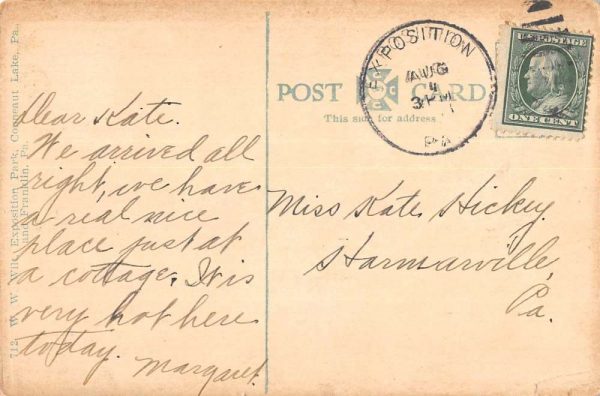 EXPOSITION
AUG
4
3 PM
PA
U.S. POSTAGE
ONE CENT
POST CARD
This side for address
Dear Kate.
We arrived all
right, we have
a real nice
place just at
a cottage. It is
very hot here
today.
Margaret.
Miss Kate Hickey.
Harmarville,
Pa.
712. W. W. Wilt, Exposition Park, Conneaut Lake, Pa.,
and Franklin, Pa.